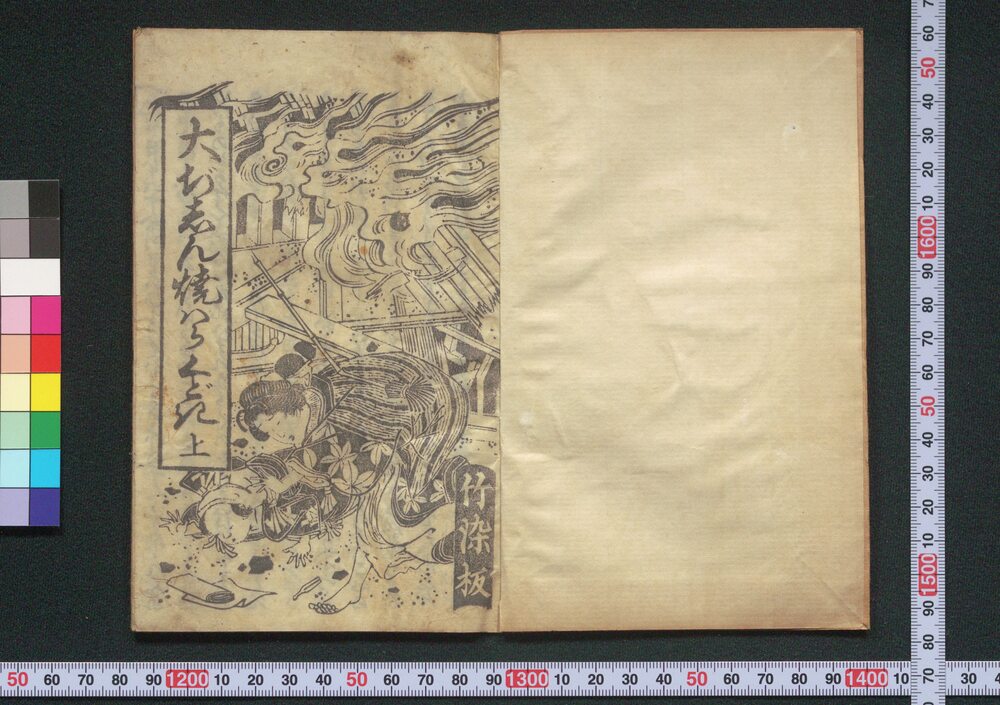 大ぢしん焼はらくどき 上
竹染板
50 60 70 80 90 1200 10 20 30 40 50 60 70 80 90 1300 10 20 30 40 50 60 70 80 90 1400 10 30
70 80 90 1500 10 20 30 40 50 60 70 80 90 1600 10 20 30 40 50 60